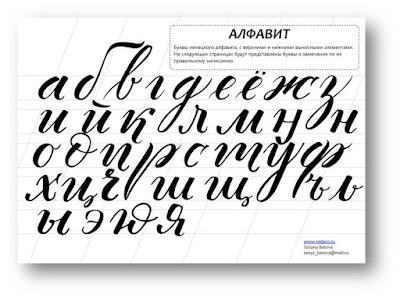 АЛФАВИТ
Буквы ненецкого алфавита, с верхними и нижними выносными элементами.
На следующих страницы будут представлены буквы и замечания по их
правильному написанию.
а б в г д е ё ж з
и й к л м ӈ н
о о п р с т у ф
х ц ч ш щ ъ ь
ы э ю я
Tatiana Batova
tanya_batova@mail.ru